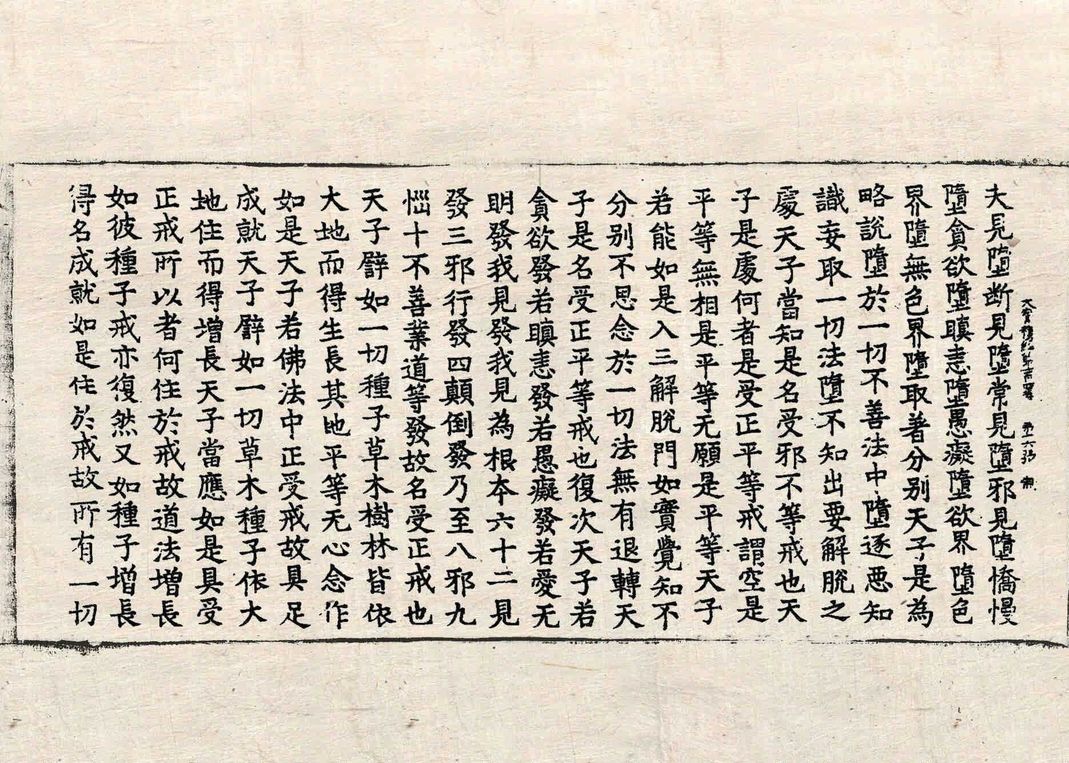 夫見墮斷見墮常見墮邪見墮憍慢
墮貪欲墮瞋恚墮愚癡墮欲界墮色
界墮無色界墮取著分别天子是為
略說墮於一切不善法中墮逐惡知
識妄取一切法墮不知出要解脫之
處天子當知是名受邪不等戒也天
子是處何者是受正平等戒謂空是
平等無相是平等无願是平等天子
若能如是入三解脫門如實覺知不
分别不思念於一切法無有退轉天
子是名受正平等戒也復次天子若
貪欲發若瞋恚發若愚癡發若愛无
明發我見發我見為根本六十二見
發三邪行發四顛倒發乃至八邪九
惱十不善業道等發故名受正戒也
天子譬如一切種子草木樹林皆依
大地而得生長其地平等无心念作
如是天子若佛法中正受戒故具足
成就天子譬如一切草木種子依大
地住而得增長天子當應如是具受
正戒所以者何住於戒故道法增長
如彼種子戒亦復然又如種子增長
得名成就如是住於戒故所有一切